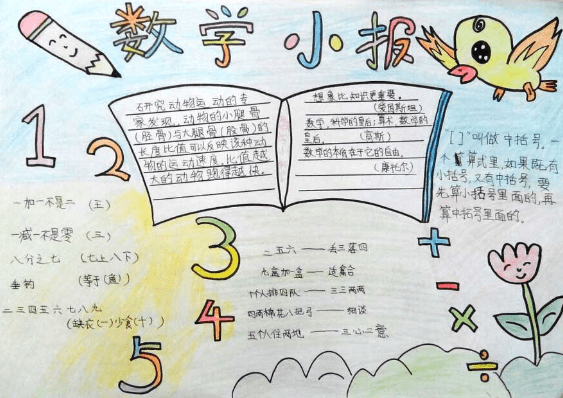 数学小报
研究动物运动的专
家发现,动物的小腿骨
(胫骨)与大腿骨(股骨)的
长度比值可以反映该种动
物的运动速度,比值越
大的动物跑得越快。
想象比知识更重要。
(爱因斯坦)
数学,科学的皇后;算术,数学的
皇后。(高斯)
数学的本质在于它的自由。
(康托尔)
"[ ]"叫做中括号,一
个算式里,如果既有
小括号,又有中括号,要
先算小括号里面的,再
算中括号里面的。
1
2
3
4
5
一加一不是二 (王)
一减一不是零 (三)
八分之七 (七上八下)
垂钓 (等于(鱼))
二三四五六七八九
(缺衣(一)少食(十))
二五六——丢三落四
七盒加一盒——适合
十个人排四队——三三两两
四两棉花八把弓——细谈
五个人住两地——三心二意
+
-
×
÷